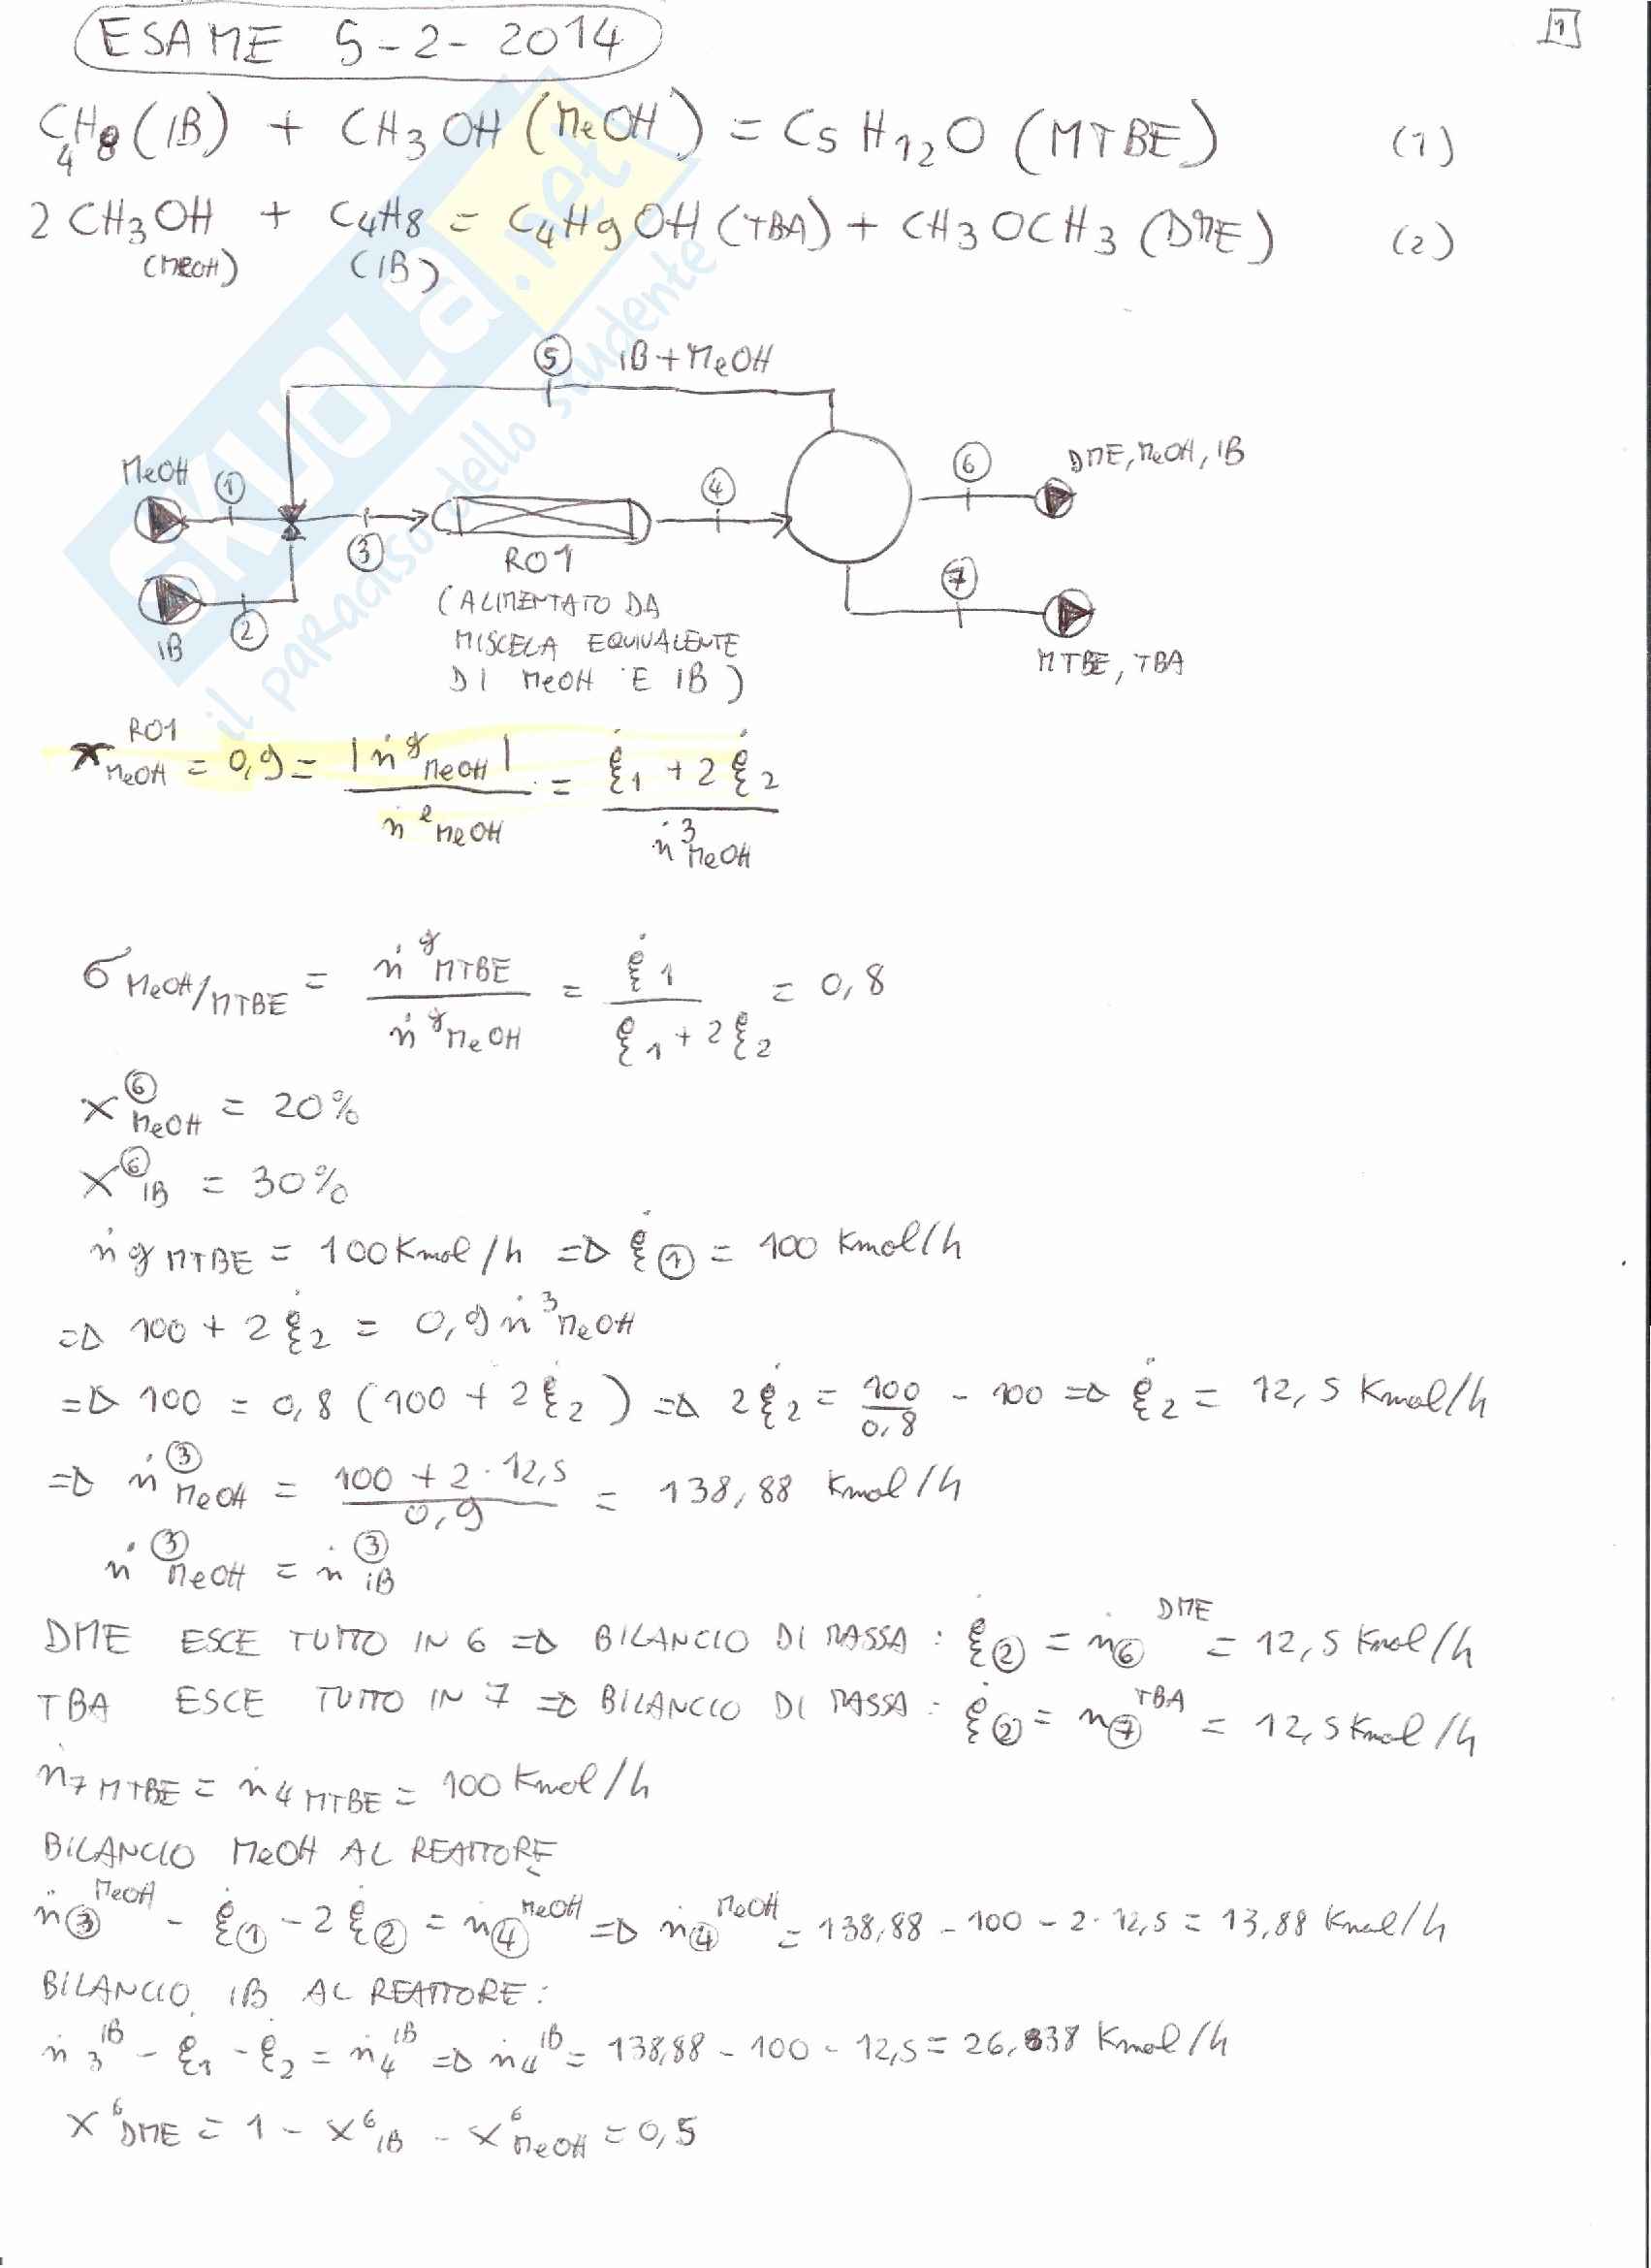 ESAME 5-2-2014
1
C4H8 (IB) + CH3OH (MeOH) = C5H12O (MTBE) (1)
2 CH3OH + C4H8 = C4H9OH (TBA) + CH3OCH3 (DME) (2)
(MeOH) (IB)
5 IB+MeOH
MeOH 1 3 4 6 DME, MeOH, IB
IB 2 R01 7 MTBE, TBA
(ALIMENTATO DA
MISCELA EQUIVALENTE
DI MeOH E IB)
x^R01_MeOH = 0,9 = |ṅ^g_MeOH| / ṅ^e_MeOH = (ξ̇1 + 2ξ̇2) / ṅ^3_MeOH
σ MeOH/MTBE = ṅ^g_MTBE / ṅ^g_MeOH = ξ̇1 / (ξ1 + 2ξ2) = 0,8
x^⑥_MeOH = 20%
x^⑥_IB = 30%
ṅg MTBE = 100 Kmol/h => ξ̇① = 100 Kmol/h
=> 100 + 2ξ̇2 = 0,9 ṅ^3_MeOH
=> 100 = 0,8 (100 + 2ξ̇2) => 2ξ̇2 = 100/0,8 - 100 => ξ̇2 = 12,5 Kmol/h
=> ṅ^③_MeOH = (100 + 2·12,5) / 0,9 = 138,88 Kmol/h
ṅ^③_MeOH = ṅ^③_iB
DME ESCE TUTTO IN 6 => BILANCIO DI MASSA: ξ̇② = ṅ⑥^DME = 12,5 Kmol/h
TBA ESCE TUTTO IN 7 => BILANCIO DI MASSA: ξ̇② = n⑦^TBA = 12,5 Kmol/h
ṅ7 MTBE = ṅ4 MTBE = 100 Kmol/h
BILANCIO MeOH AL REATTORE
ṅ③^MeOH - ξ̇① - 2ξ̇② = ṅ④^MeOH => ṅ④^MeOH = 138,88 - 100 - 2·12,5 = 13,88 Kmol/h
BILANCIO IB AL REATTORE:
ṅ3^IB - ξ̇1 - ξ̇2 = ṅ4^IB => ṅ4^IB = 138,88 - 100 - 12,5 = 26,838 Kmol/h
x^6_DME = 1 - x^6_IB - x^6_MeOH = 0,5
SKUOLA.net
il paradiso dello studente